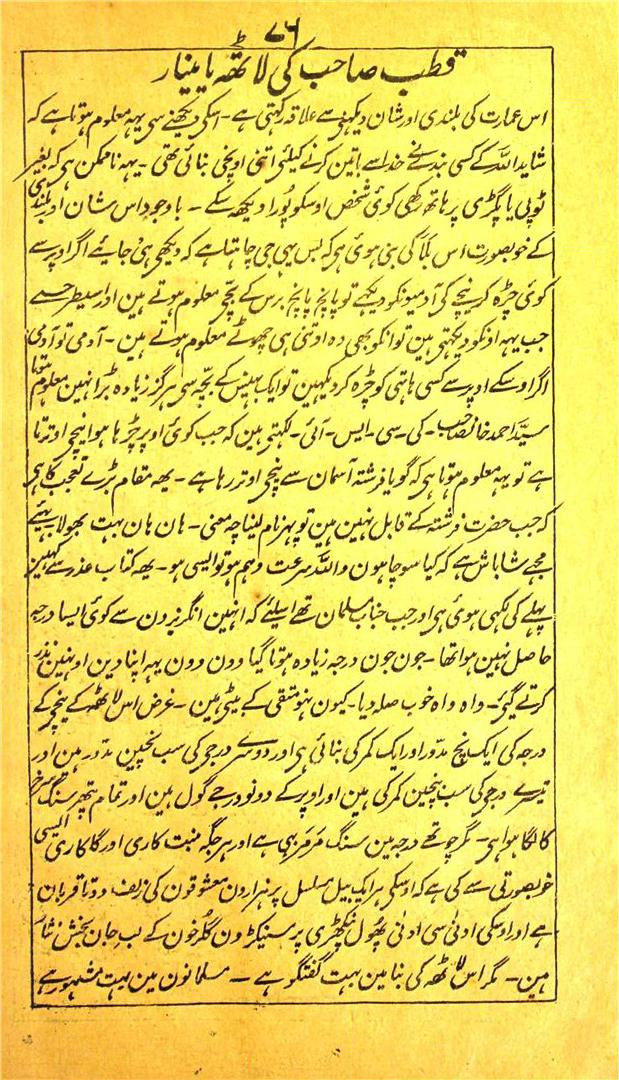 ۷۶
قطب صاحب کی لاٹھہ یا مینار
اس عمارت کی بلندی اور شان دیکہنی سے علاقہ رکہتی ہے۔ اسکی دیکہنے سی یہہ معلوم ہوتا ہے کہ
شاید اللہ کے کسی بندے نے خدا سے باتین کرنے کیلئی اتنی اونچی بنائی تھی۔ یہہ ناممکن ہی کہ بغیر
ٹوپی یا پگڑی پر ہاتھہ رکھی کوئی شخص اوسکو پورا دیکھہ سکے۔ باوجود اس شان اور بلندی
کے خوبصورت اس بلا کی بنی ہوئی ہی کہ بس یہی جی چاہتا ہے کہ دیکھی ہی جایئے اگر اوپر سے
کوئی چڑہ کر نیچے کی آدمیونکو دیکہے تو پانچ پانچ برس کے بچّی معلوم ہوتے ہین اور اسیطرح سے
جب یہہ اونکو دیکہتی ہین تو انکو بھی وہ اوتنی ہی چھوٹے معلوم ہوتے ہین۔ آدمی تو آدمی
اگر اوسکے اوپر سے کسی ہاتی کو چڑہ کر دیکہین تو ایک بہینس کے بچّہ سی ہرگز زیادہ بڑا نہین معلوم ہوتا
سیّد احمد خانصاحب۔ کی۔ سی۔ ایس۔ آئی۔ لکہتی ہین کہ جب کوئی اوپر چڑہا ہوا نیچی اوترتا
ہے تو یہہ معلوم ہوتا ہی کہ گویا فرشتہ آسمان سے نیچی اوتر رہا ہے۔ یھہ مقام بڑے تعجب کا ہی
کہ جب حضرت فرشتہ کے قابل نہین ہین تو پہر نام لینا چہ معنی۔ ہان ہان بہت بھولا بہئے
مجے شاباش ہے کہ کیا سوچا ہون واللہ سرعت وہم ہو تو ایسی ہو۔ یھہ کتاب غدر سے کہین
پہلے کی لکہی ہوئی ہی اور جب جناب مسلمان تھے اسلیے کہ انہین انگریزون سے کوئی ایسا درجہ
حاصل نہین ہوا تھا۔ جون جون درجہ زیادہ ہوتا گیا وون وون یہہ اپنا دین اونہین نذر
کرتے گئی۔ واہ واہ خوب صلہ دیا۔ کیون نہو متقی کے بیٹی ہین۔ غرض اس لاٹھہ کے نیچے کے
درجہ کی ایک پنچ مدّور اور ایک کمرکی بنائی ہی اور دوسرے درجی کی سب پنچین مدّور ہین اور
تیسرے درجی کی سب پنچین کمرکی ہین اور اوپر کے دونو درجے گول ہین اور تمام پتھر سنگ سرخ
کا لگا ہوا ہی۔ مگر چوتھے درجہ مین سنگ مرمر بہی ہے اور ہر جگہ منبت کاری اور گلکاری ایسی
خوبصورتی سے کی ہے کہ اوسکی ہر ایک بیل مسلسل پر ہزارون معشوقون کی زلف دوتا قربان
ہے اور اوسکی ادنٰی سی ادنٰی پھول پنکھڑی پر سینکڑون گلرخون کے لب جان بخش نثار
ہین۔ مگر اس لاٹھہ کی بنا مین بہت گفتگو ہے۔ مسلمانون مین بہت مشہور ہے